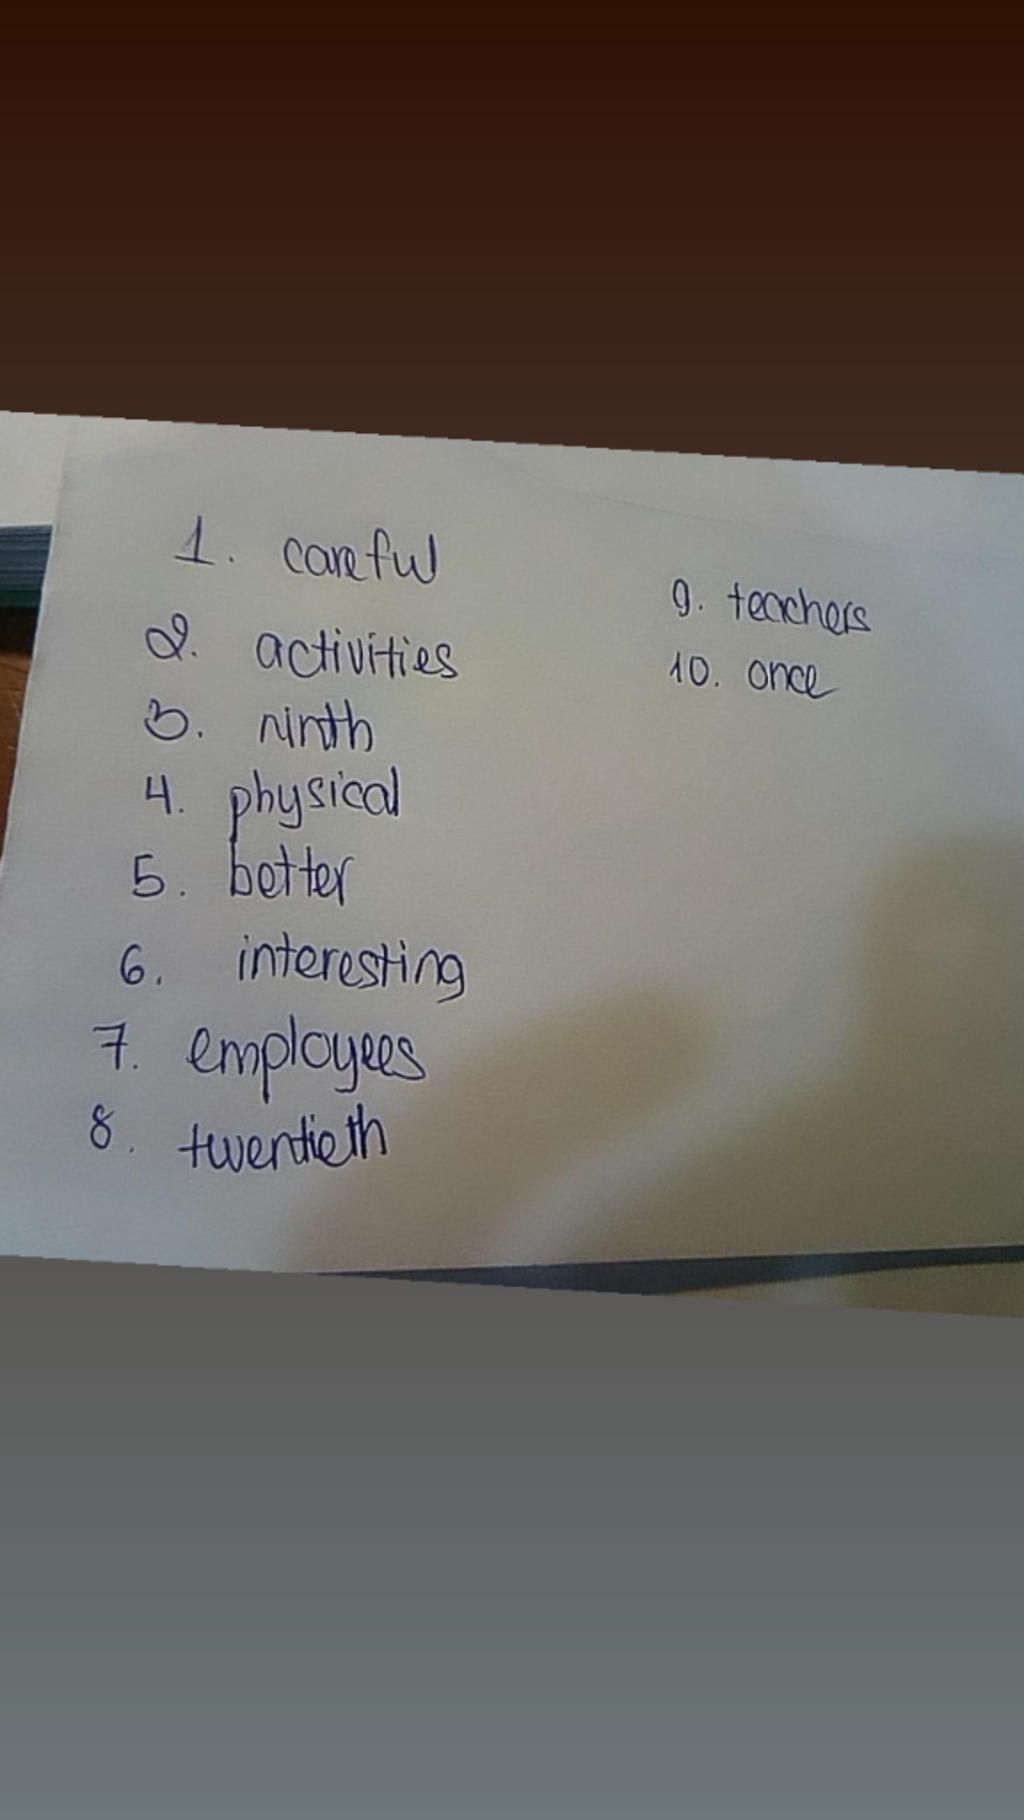 1. careful
2. activities
3. ninth
4. physical
5. better
6. interesting
7. employees
8. twentieth
9. teachers
10. once